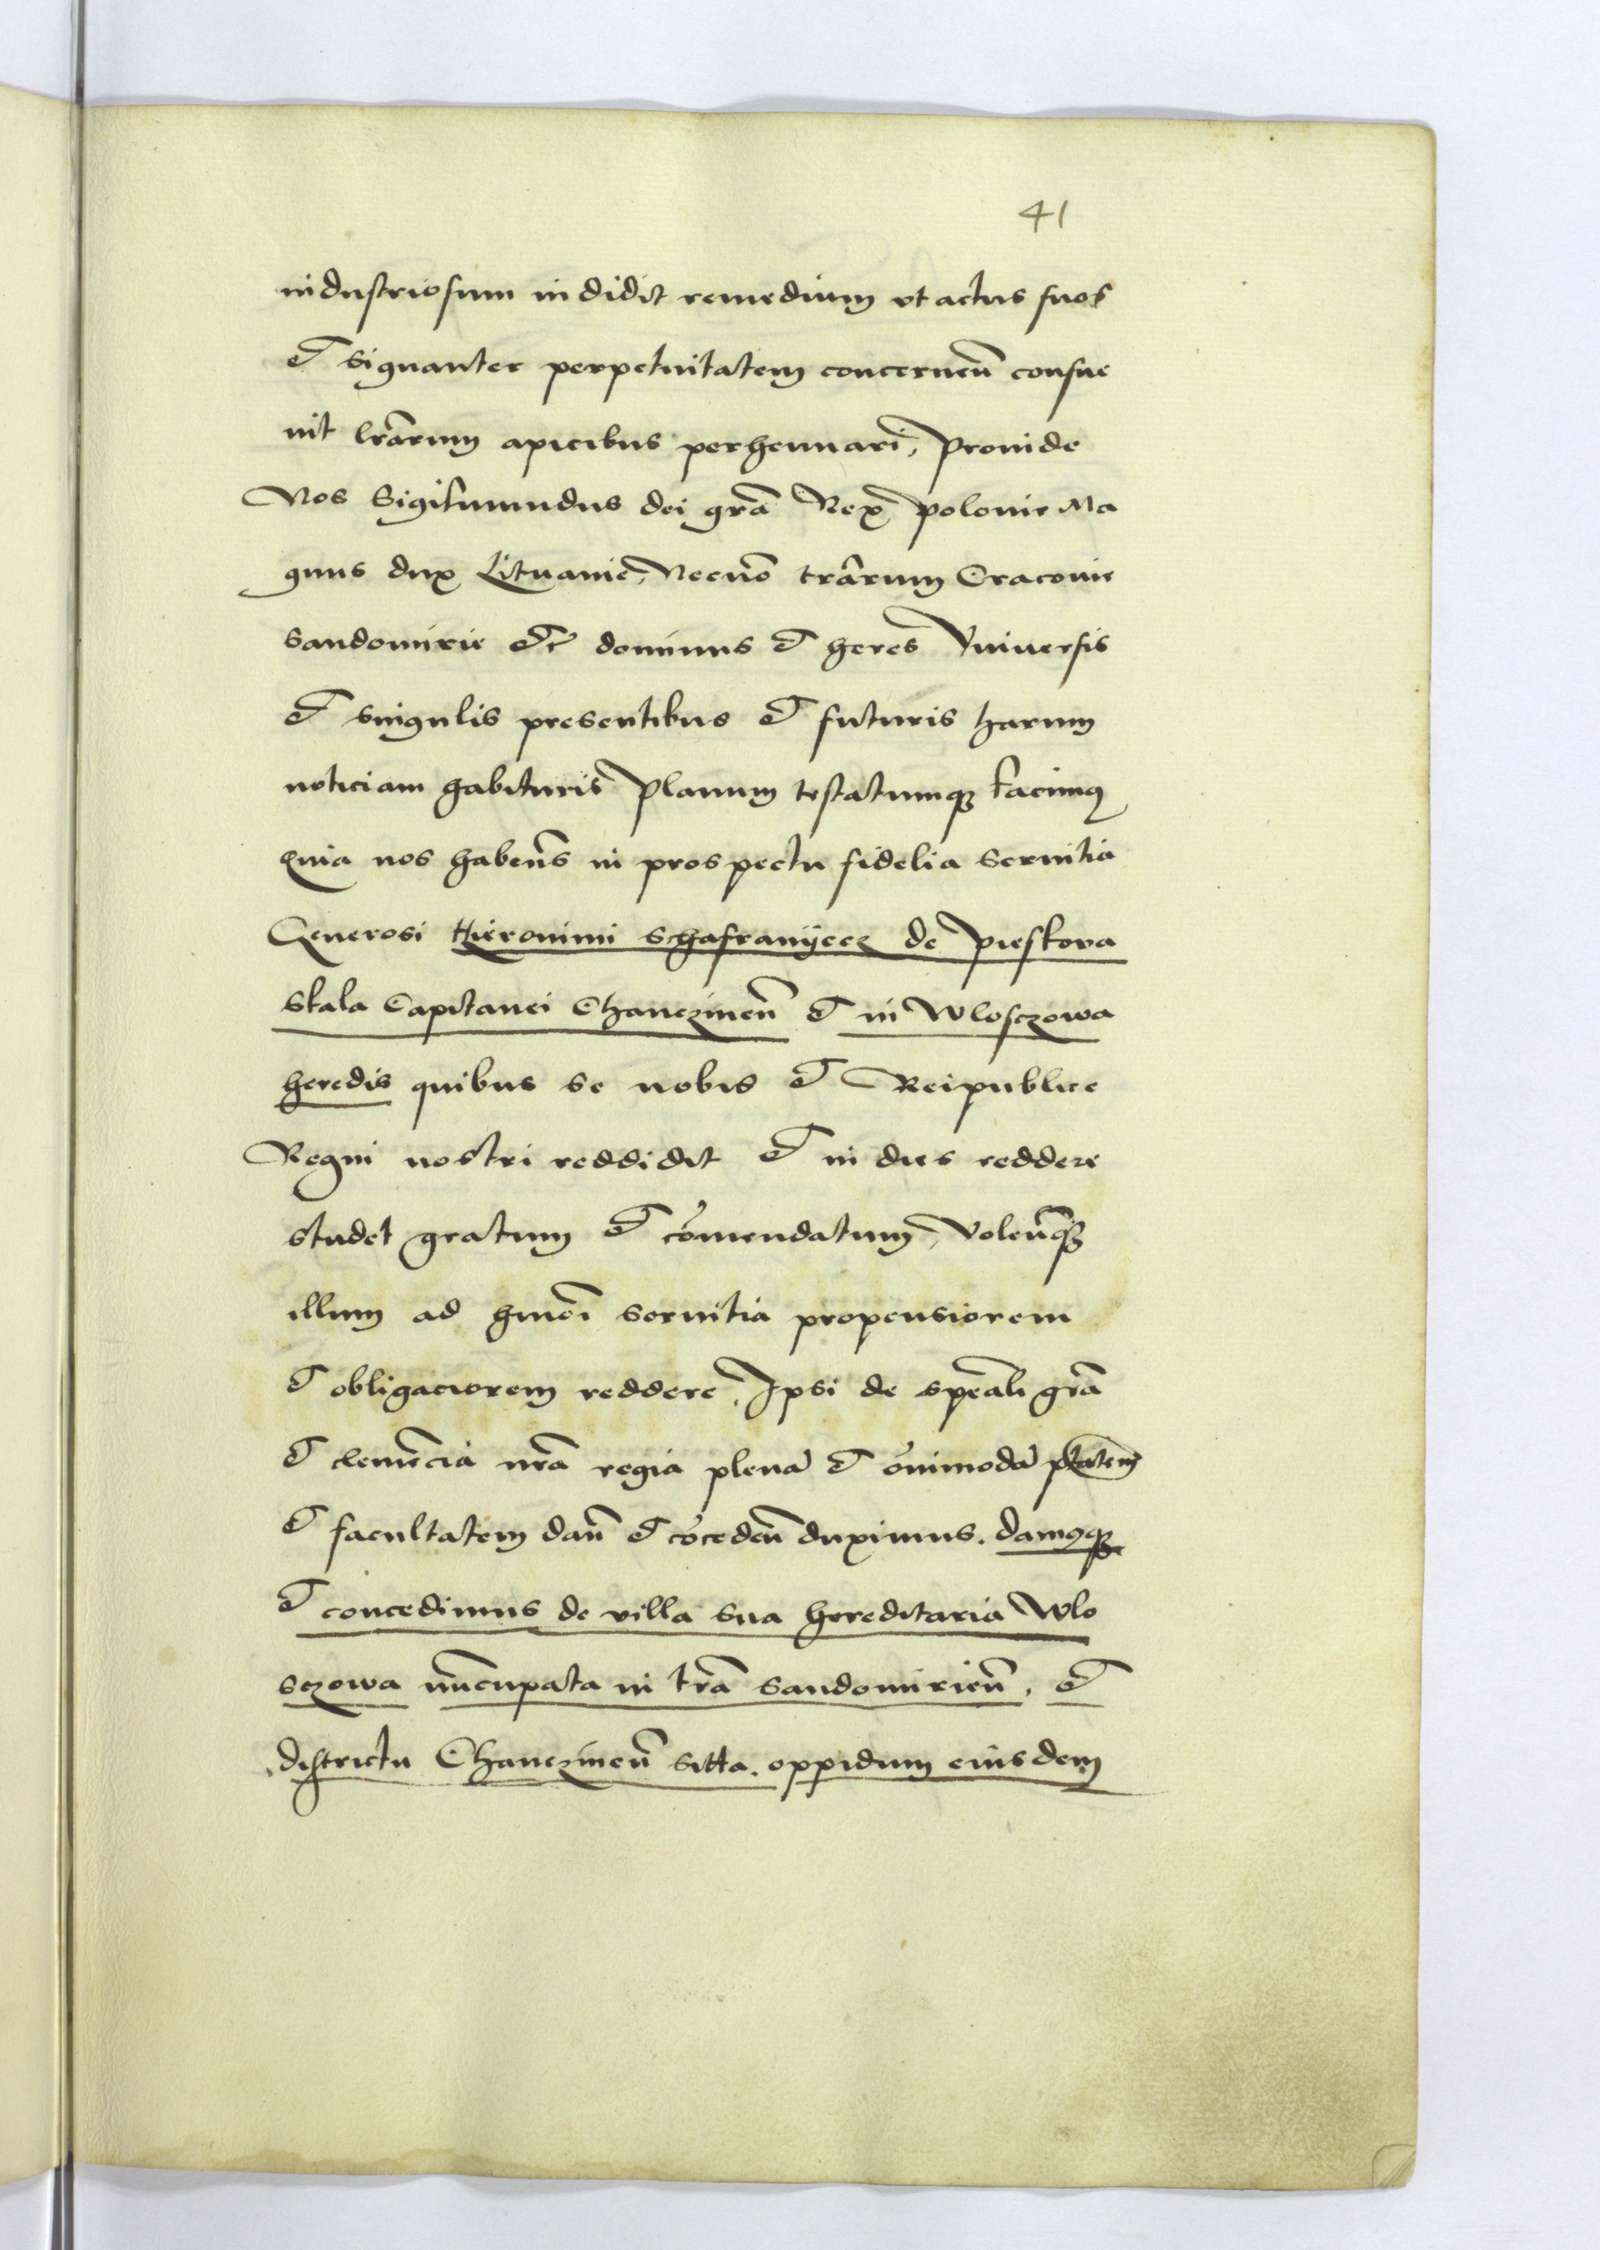 41
industriosum indidit remedium vt actus suos
et signanter perpetuitatem concerneñ consue
uit lr̃arum apicibus perhennari, Proinde
Nos Sigismundus dei gr̃a Rex Polonie Ma
gnus dux Lituanie, Necnõ tr̃arum Cracouie
Sandomirie etc̃ dominus et heres Vniuersis
et singulis presentibus et futuris harum
noticiam habituris Planum testatumqꝫ facimꝰ
Quia nos habeñs in prospectu fidelia seruitia
Generosi Hieronimi Schafranijecz de Pieskova
skala Capitanei Chanczineñ et in Wlosczowa
heredis quibus se nobis et Reipublice
Regni nostri reddidit et in dies reddere
studet gratum et com̃endatum, Voleñqꝫ
illum ad hmõi seruitia propensiorem
et obligaciorem reddere, Ipsi de spẽali gr̃a
et clemẽcia nr̃a regia plenã et om̃imodã ptãtem
et facultatem dañ et cõcedeñ duximus. damꝰqꝫ
et concedimus de villa sua hereditaria Wlo
sczowa nũncupata in tr̃a Sandomirieñ, et
districtu Chanczineñ sitta. oppidum eiusdem